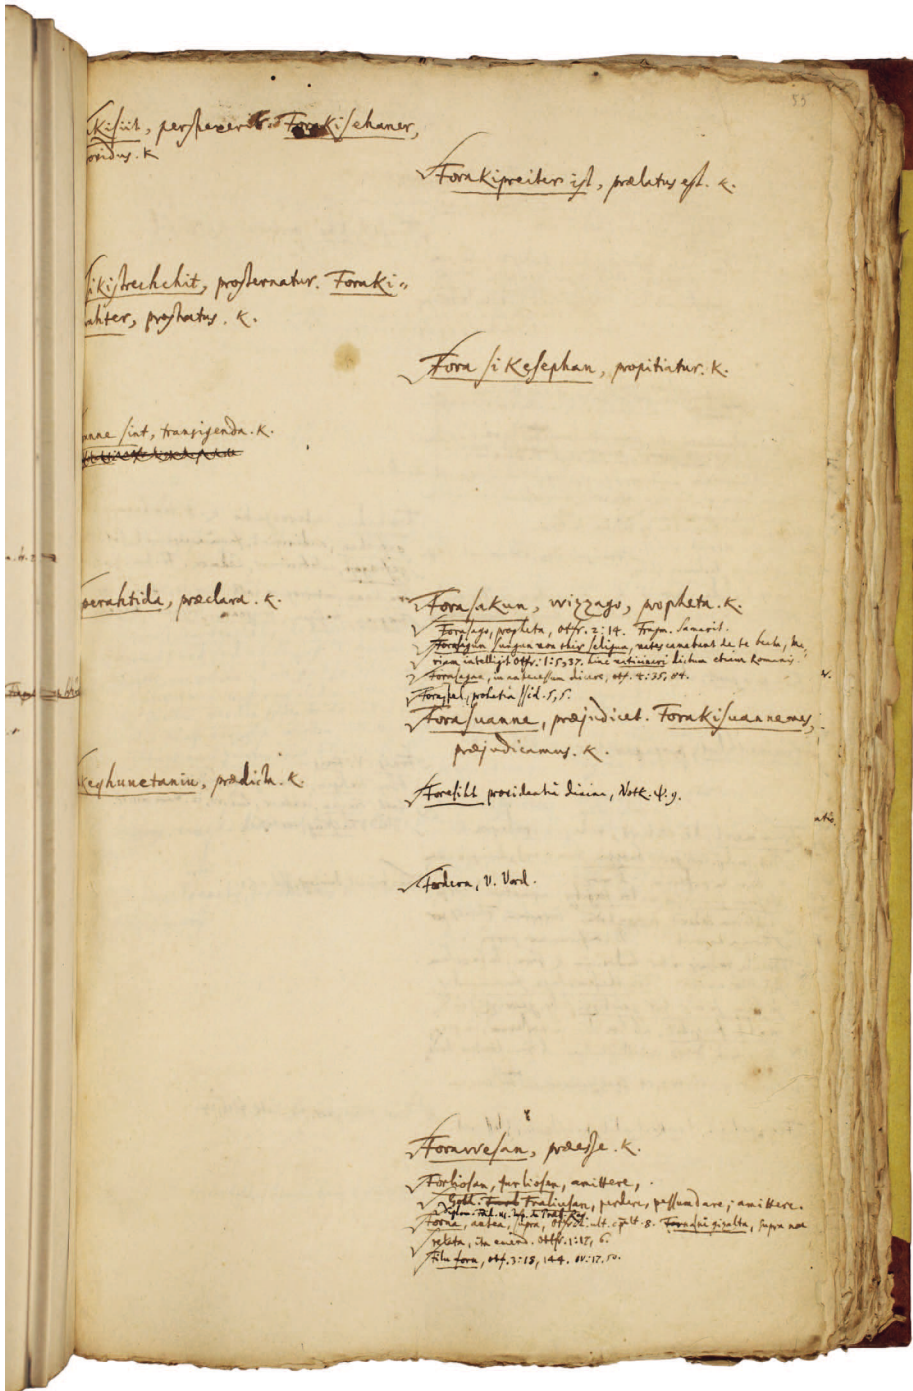 53
kisiit, perspexerit. Forakisehaner,
providus. K
sikistrechchit, prosternatur. Foraki=
ahter, prostratus. K.
anne sint, transigenda. K.
perahtida, præclara. K.
keqhuuetaniu, prædicta. K.
Forakipreiter ist, prælatus est. K.
Fora si kesephan, propitiatur. K.
Forasakun, wizzago, propheta. K.
Forasago, propheta, Otfr. 2:14. Fragm. Samarit.
Forasagun sungun von thir seligun, vates canebant de te beata, Ma,
riam intelligit Otfr. 1:5,37. hinc dictum etiam Romanis
Forasagan, in antecessum dicere, otf. 4:35,
Foraspel, Isid. 5,5.
Forasuanne, præjudicet. Forakisuannemes,
præjudicamus. K.
Foresiht providentia divina, Notk. ψ. 9.
Fordern, V. Vord.
Forawesan, præesse. K.
Forliosan, furliosan, amittere,
Goth. Fraliusan, perdere, pessumdare, amittere.
Forna, antea, supra, Otfr. ult. 8. gizalta, supra nar
relata, Otfr. 1:17, 6.
Filu forn, otf. 3:18, 144. IV:17.50.